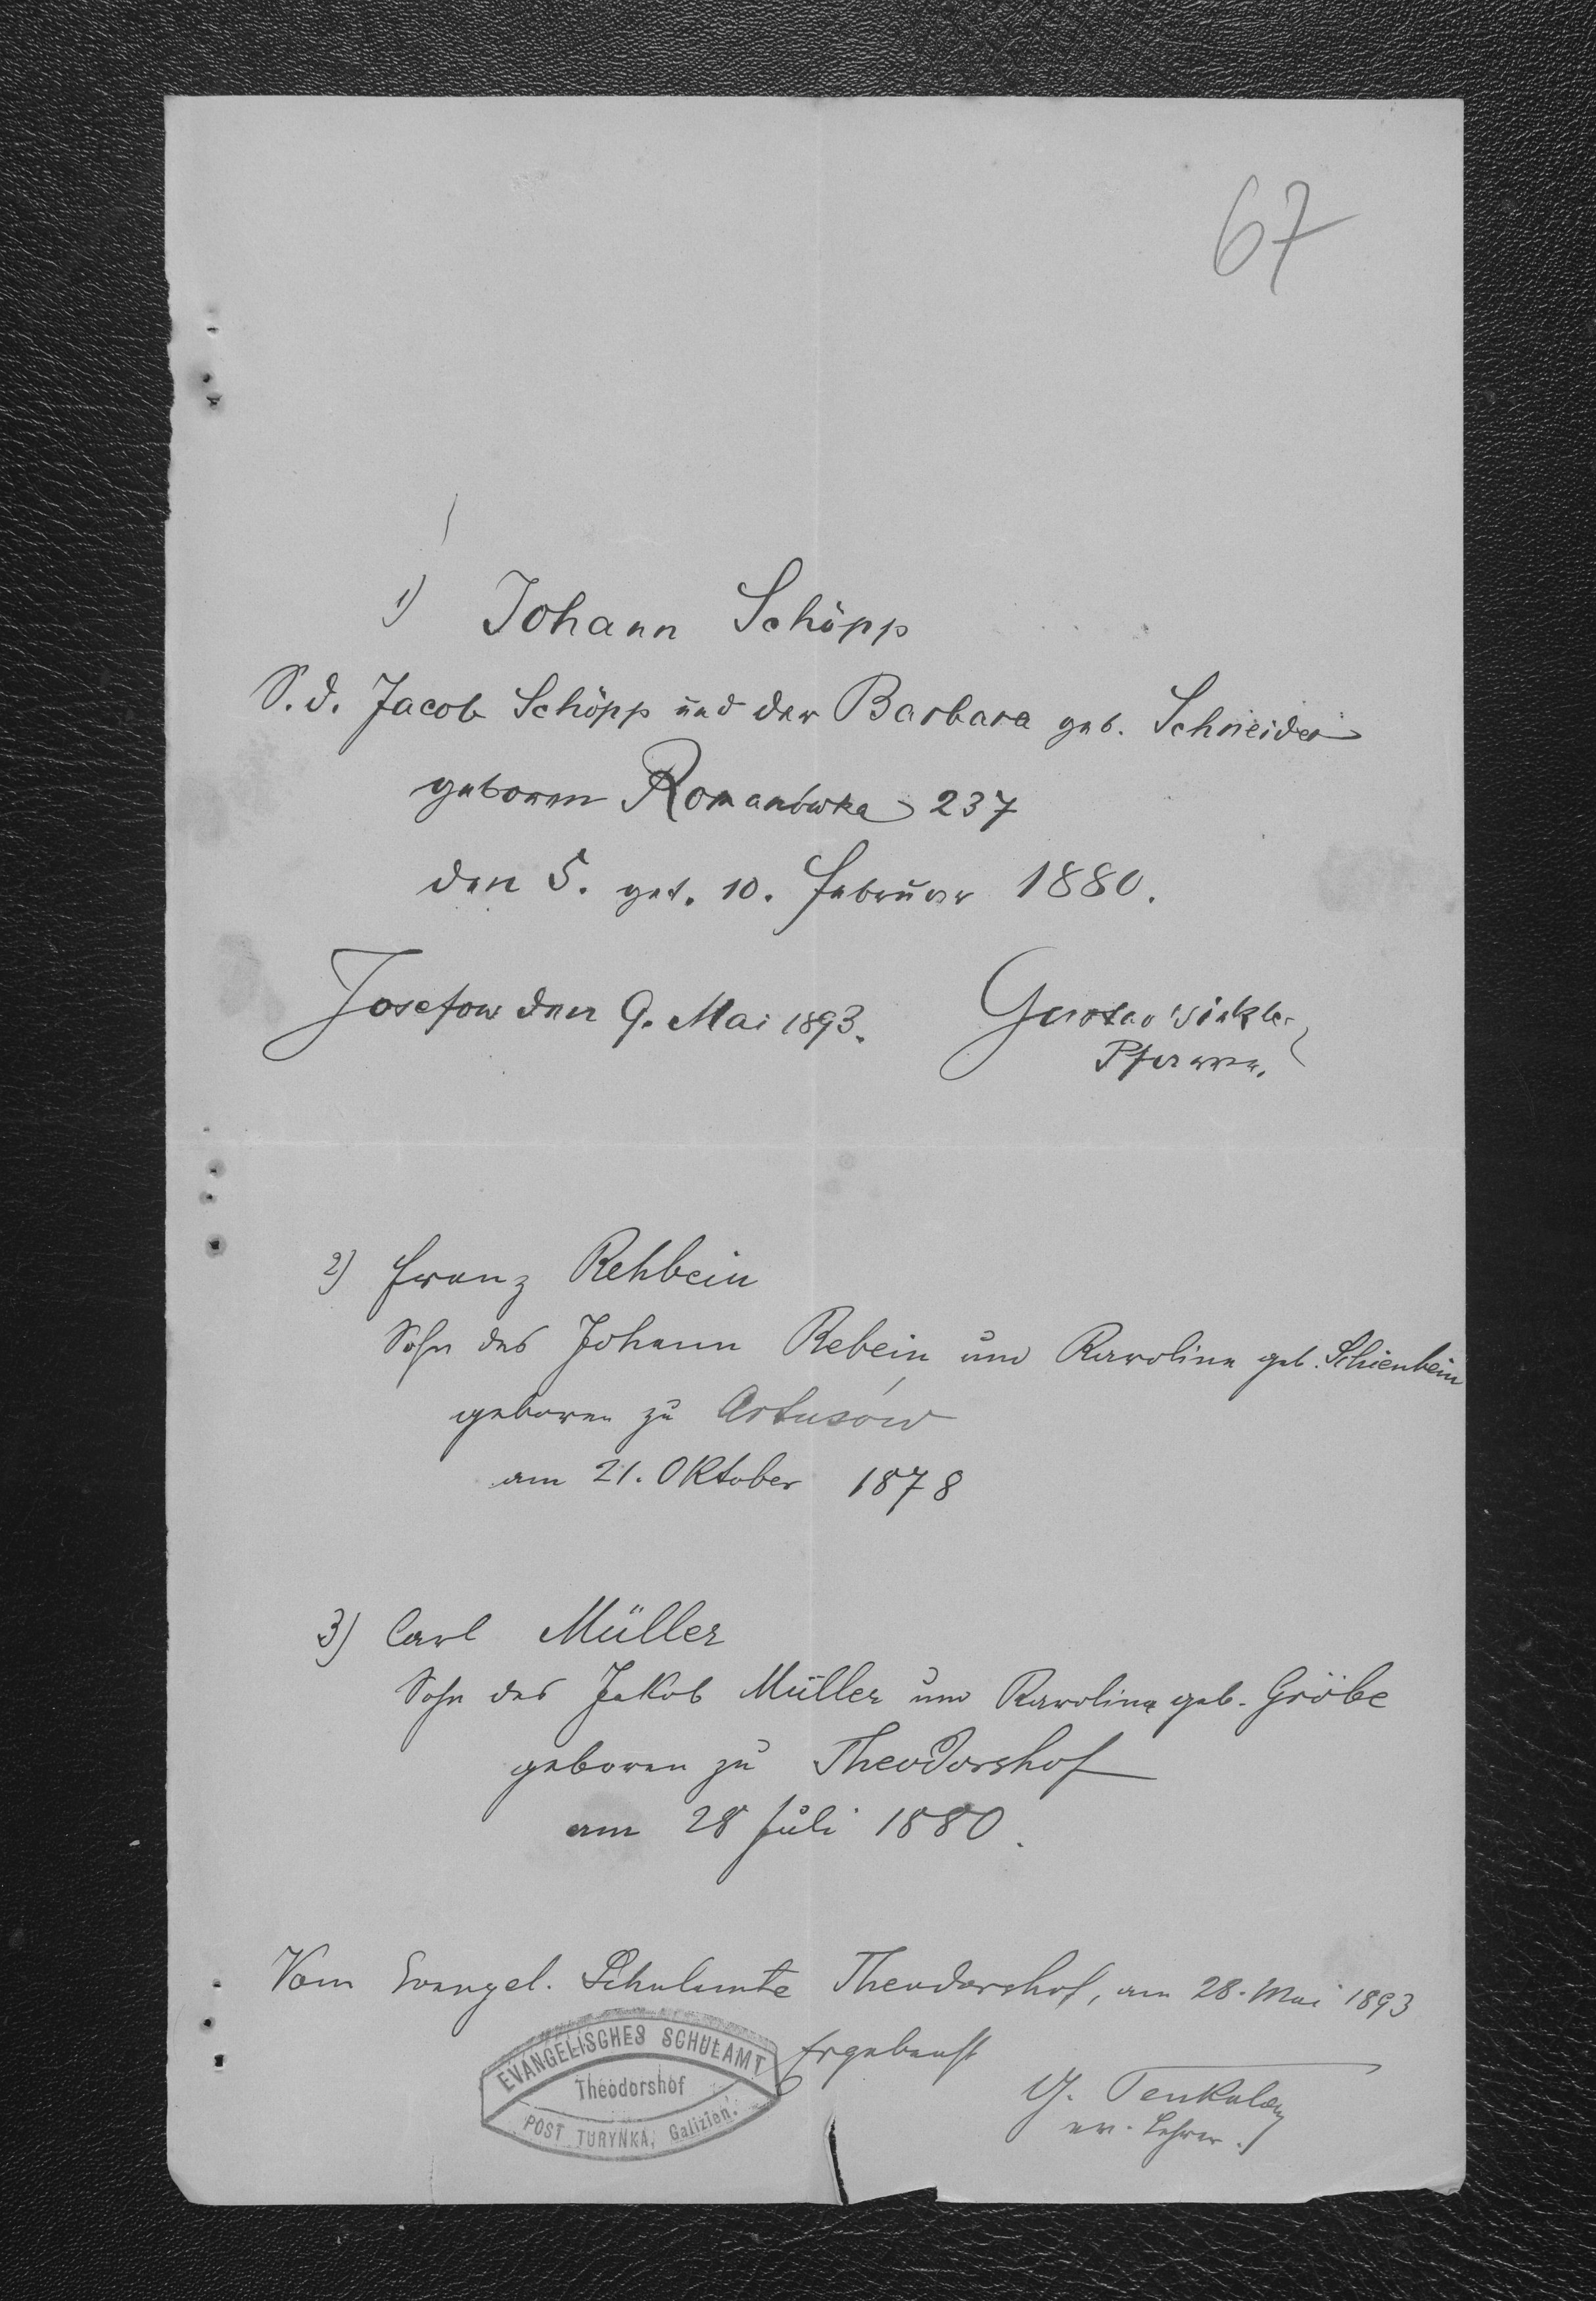 67
1) Johann Schöpp
S. d. Jacob Schöpp und der Barbara geb. Schneider
geboren Romanówka 237
den 5. get. 10. Februar 1880.
Josefow den 9. Mai 1893. Gustav Winkler
Pfarrer.
2) Franz Rehbein
Sohn des Johann Rebein und Karolina geb. Schienbein
geboren zu Artusów
am 21. Oktober 1878
3) Carl Müller
Sohn des Jakob Müller und Karolina geb. Gröbe
geboren zu Theodorshof
am 28 Juli 1880.
Vom Evangel. Schulamte Theodorshof, am 28. Mai 1893
Ergebenst
EVANGELISCHES SCHULAMT
Theodorshof
POST TURYNKA, Galizien.
ev. Lehrer.